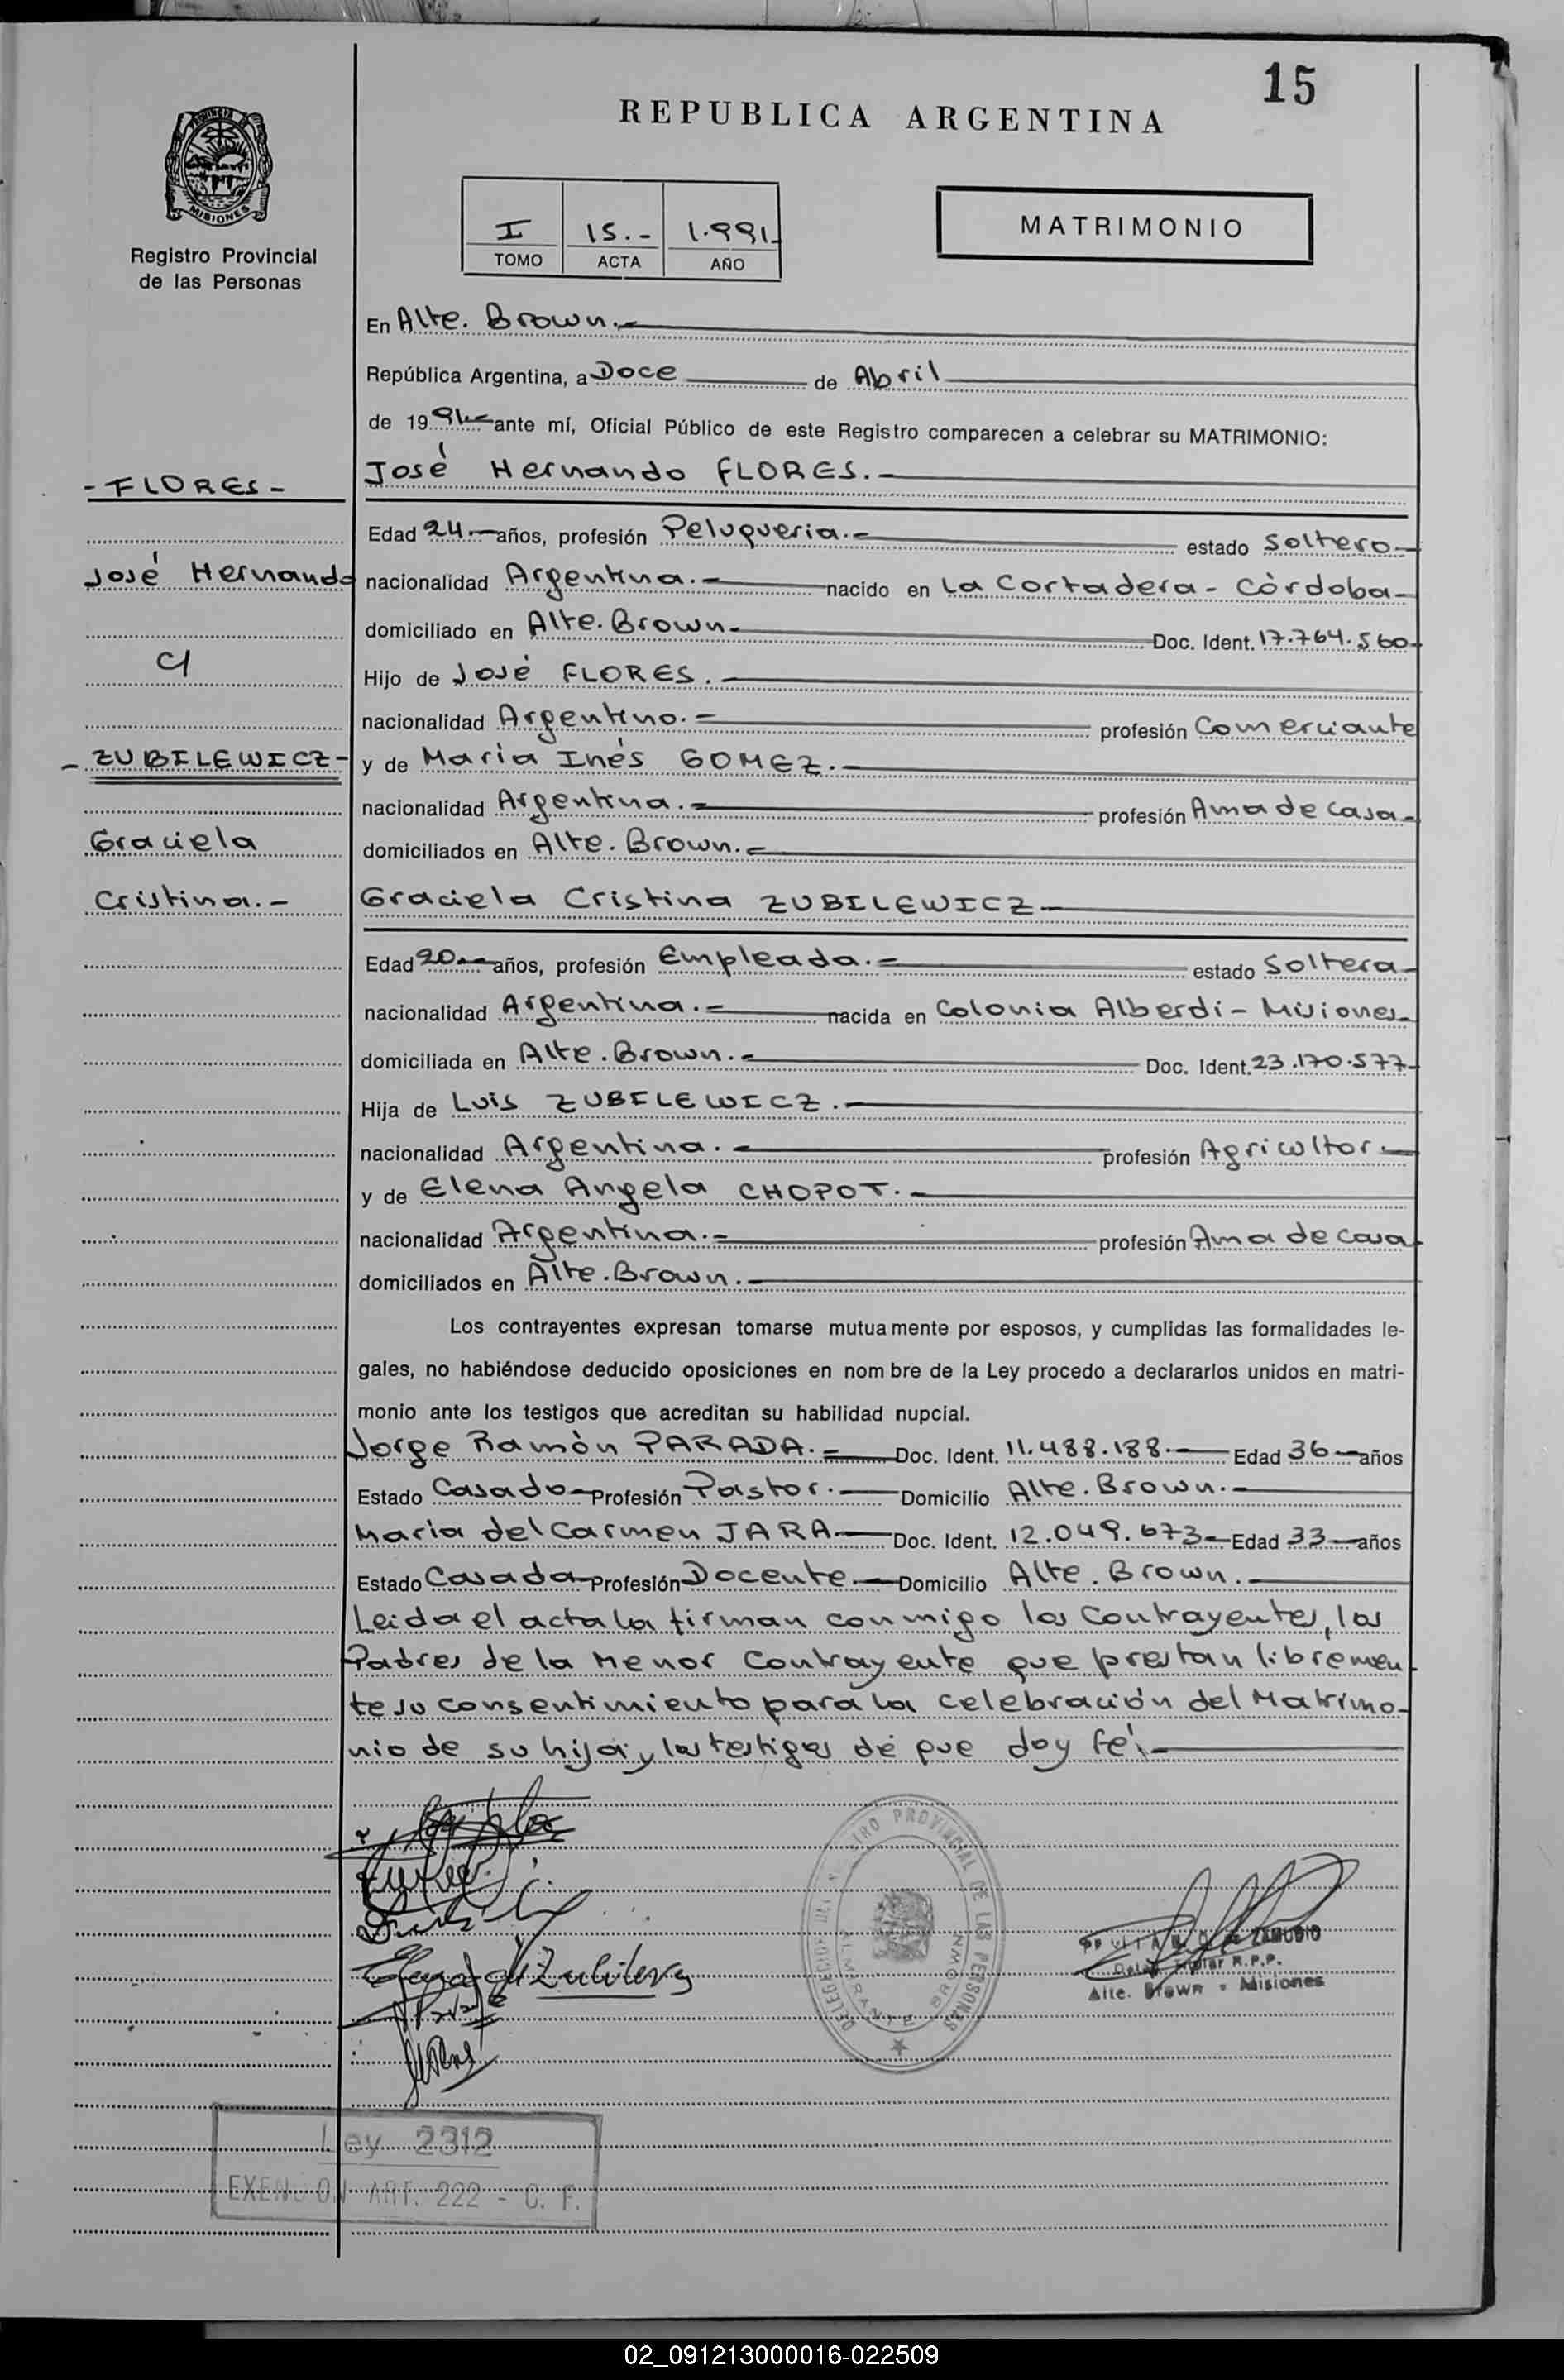 15
REPUBLICA ARGENTINA
PROVINCIA DE
MISIONES
Registro Provincial
de las Personas
I 15.- 1.991.-
TOMO ACTA AÑO
MATRIMONIO
En Alte. Brown.-
República Argentina, a Doce de Abril
de 1991.- ante mí, Oficial Público de este Registro comparecen a celebrar su MATRIMONIO:
José Hernando FLORES.-
- FLORES -
José Hernando
c/
- ZUBILEWICZ -
Graciela
Cristina.-
Edad 24.- años, profesión Peluqueria.- estado Soltero-
nacionalidad Argentina.- nacido en La Cortadera - Còrdoba-
domiciliado en Alte. Brown- Doc. Ident. 17.764.560-
Hijo de José FLORES.-
nacionalidad Argentino.- profesión Comerciante
y de Maria Inés GOMEZ.-
nacionalidad Argentina.- profesión Ama de casa-
domiciliados en Alte. Brown.-
Graciela Cristina ZUBILEWICZ-
Edad 20.- años, profesión Empleada.- estado Soltera-
nacionalidad Argentina.- nacida en Colonia Alberdi - Misiones-
domiciliada en Alte. Brown.- Doc. Ident. 23.170.577-
Hija de Luis ZUBILEWICZ.-
nacionalidad Argentina.- profesión Agricultor.-
y de Elena Angela CHOPOT.-
nacionalidad Argentina.- profesión Ama de casa
domiciliados en Alte. Brown.-
Los contrayentes expresan tomarse mutuamente por esposos, y cumplidas las formalidades le-
gales, no habiéndose deducido oposiciones en nom bre de la Ley procedo a declararlos unidos en matri-
monio ante los testigos que acreditan su habilidad nupcial.
Jorge Ramòn PARADA.- Doc. Ident. 11.488.188.- Edad 36- años
Estado Casado- Profesión Pastor.- Domicilio Alte. Brown.-
Maria del Carmen JARA- Doc. Ident. 12.049.673- Edad 33- años
Estado Casada- Profesión Docente.- Domicilio Alte. Brown.-
Leida el acta la firman conmigo los Contrayentes, los
Padres de la Menor Contrayente que prestan libremen
te su consentimiento para la celebración del Matrimo-
nio de su hija y los testigos de que doy fé.-
PROVINCIAL DE LAS PERSONAS
ALMIRANTE BROWN
ZAMUDIO
R.P.P.
Alte. Brown - Misiones
Ley 2312
EXENCION ART. 222 - C. F.
02_091213000016-022509